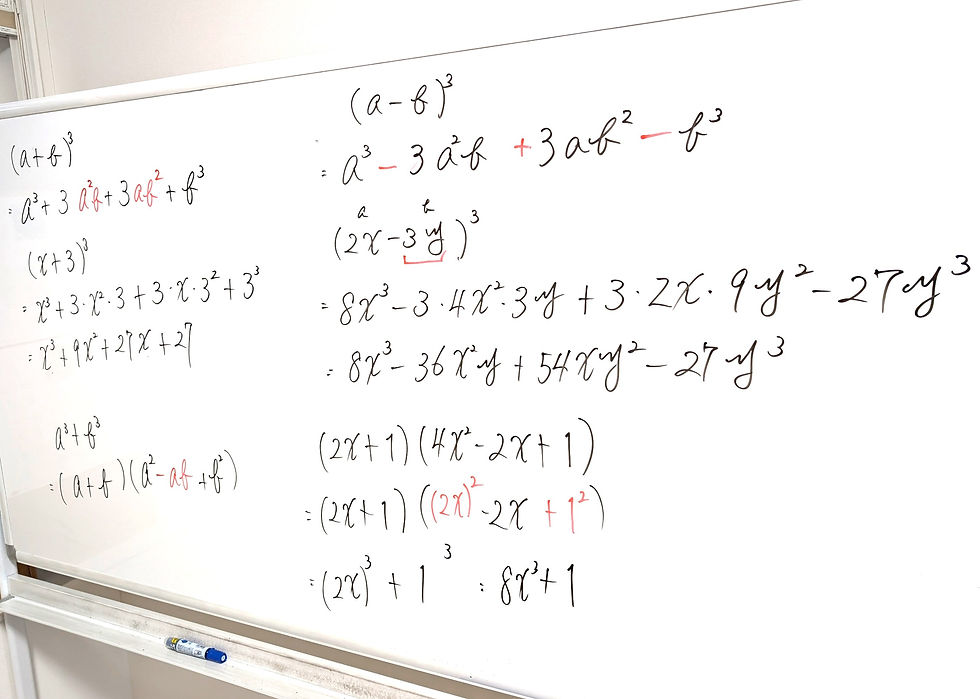 (a+b)³
= a³+3a²b+3ab²+b³
(x+3)³
= x³+3·x²·3+3·x·3²+3³
= x³+9x²+27x+27
a³+b³
= (a+b)(a²-ab+b²)
(a-b)³
= a³-3a²b+3ab²-b³
a b
(2x-3y)³
= 8x³-3·4x²·3y+3·2x·9y²-27y³
= 8x³-36x²y+54xy²-27y³
(2x+1)(4x²-2x+1)
= (2x+1)((2x)²-2x+1²)
= (2x)³+1³ = 8x³+1